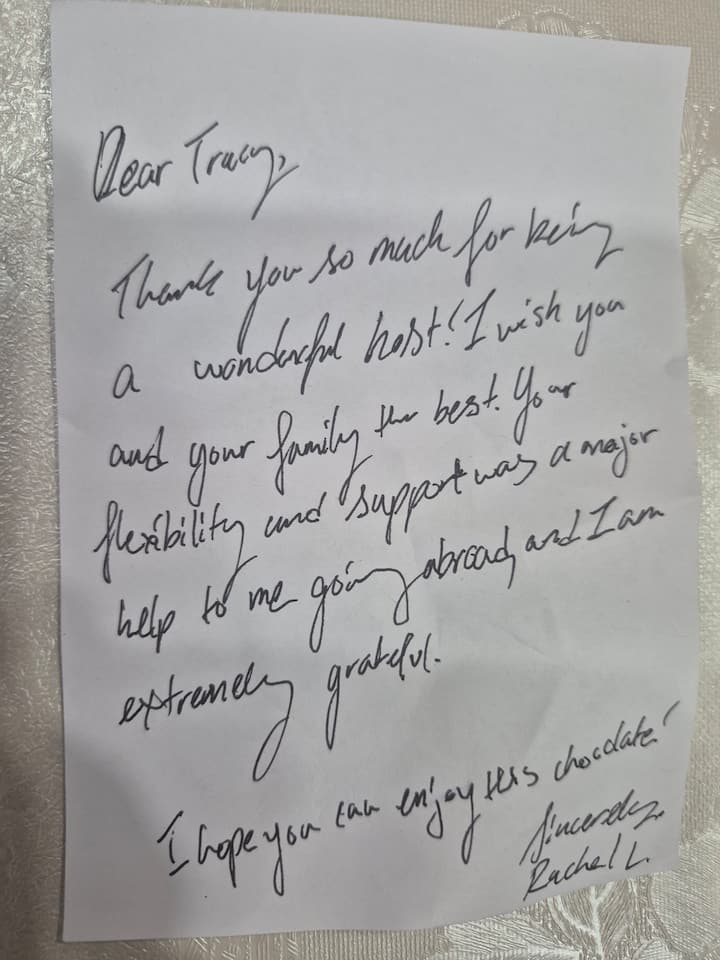 Dear Tracy,
Thank you so much for being
a wonderful host! I wish you
and your family the best. Your
flexibility and support was a major
help to me going abroad, and I am
extremely grateful.
I hope you can enjoy this chocolate!
Sincerely,
Rachel L.